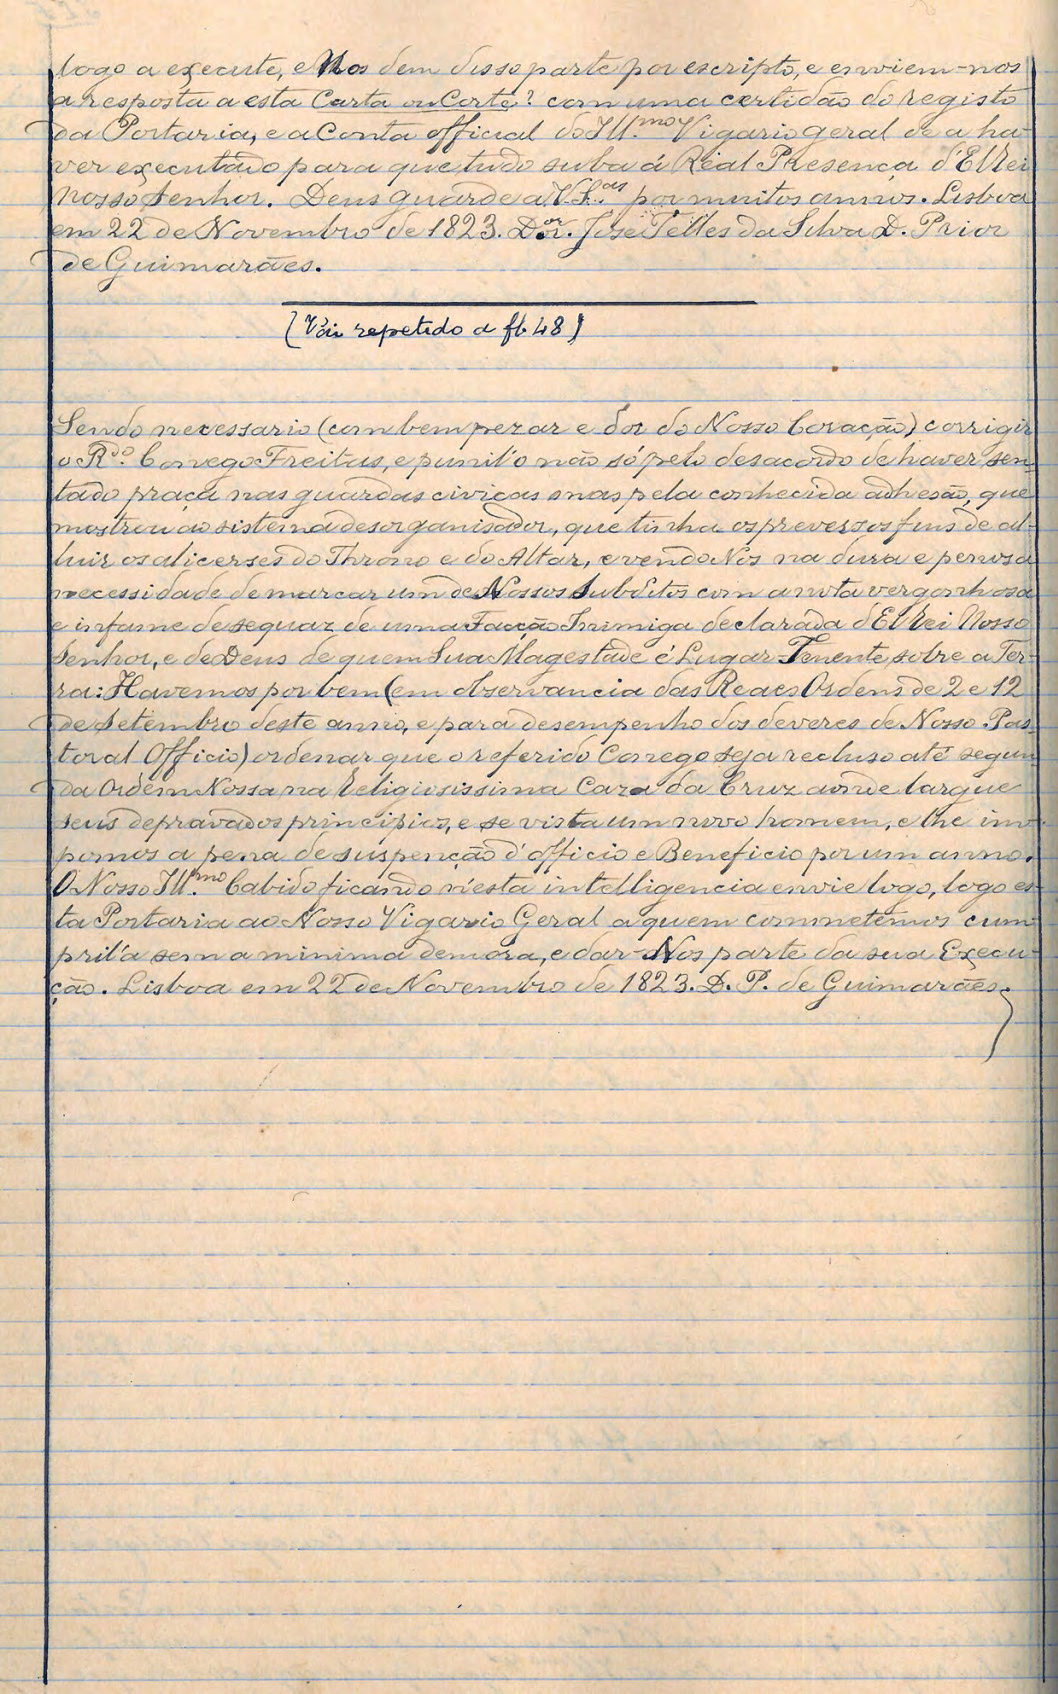 logo a execute, e Nos dem disso parte por escripto, e enviem-nos
a resposta a esta Carta ou Corte? com uma certidão do registo
da Portaria, e a Conta official do Ill.mo Vigario geral de a ha-
ver executado para que tudo suba á Real Presença d'El Rei
Nosso Senhor. Deus guarde a V. S.as por muitos annos. Lisboa
em 22 de Novembro de 1823. D.or. José Telles da Silva D. Prior
de Guimarães.
(Vai repetido a fl. 48)
Sendo necessario (com bem pezar e dor do Nosso Coração) corrigir
o R.do Conego Freitas, e punil'o não só pelo desacordo de haver sen-
tado praça nas guardas civicas mas pela conhecida adhesão, que
mostrou ao sistema desorganisador, que tinha os preversos fins de al-
luir os alicerses do Throno e do Altar, e vendo Nós na dura e penosa
necessidade de marcar um de Nossos Subditos com a nota vergonhosa
e infame de sequaz de uma Facção Inimiga declarada d'El Rei Nosso
Senhor, e de Deus de quem Sua Magestade é Lugar-Tenente sobre a Ter-
ra: Havemos por bem (em observancia das Reaes Ordens de 2 e 12
de Setembro deste anno, e para desempenho dos deveres de Nosso Pas-
toral Officio) ordenar que o referido Conego seja recluso até segun-
da Ordem Nossa na Religiosissima Caza da Cruz aonde largue
seus depravados principios, e se vista um novo homem, e lhe im-
pomos a pena de suspenção d'officio e Beneficio por um anno.
O Nosso Ill.mo Cabido ficando n'esta intelligencia envie logo, logo es-
ta Portaria ao Nosso Vigario Geral a quem commetemos cum-
pril'a sem a minima demora, e dar-Nos parte da sua Execu-
ção. Lisboa em 22 de Novembro de 1823. D. P. de Guimarães.